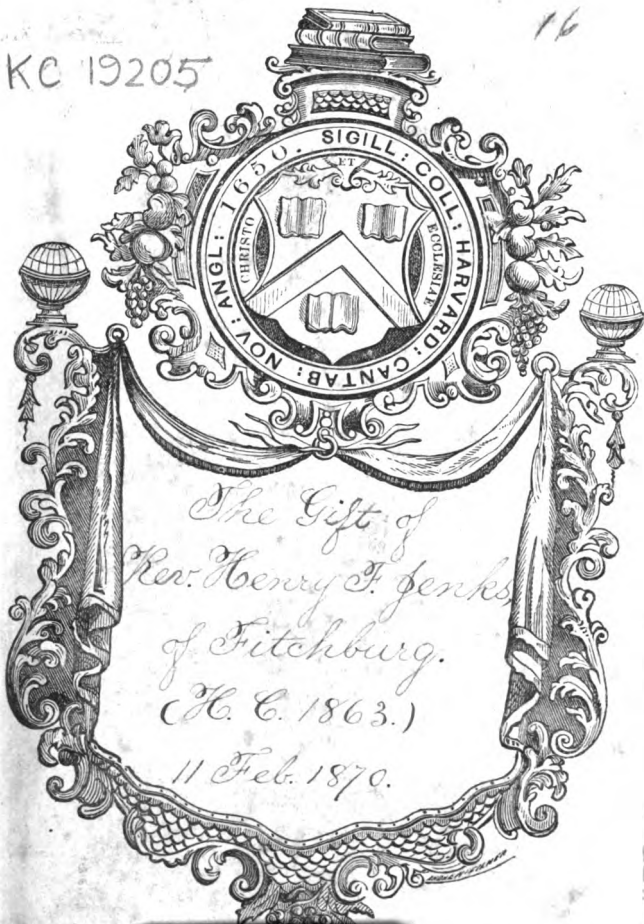 16
KC 19205
SIGILL: COLL: HARVARD: CANTAB: NOV: ANGL: 1650.
CHRISTO ET ECCLESIAE
The Gift of
Rev. Henry F. Jenks,
of Fitchburg.
(H. C. 1863.)
11 Feb. 1870.